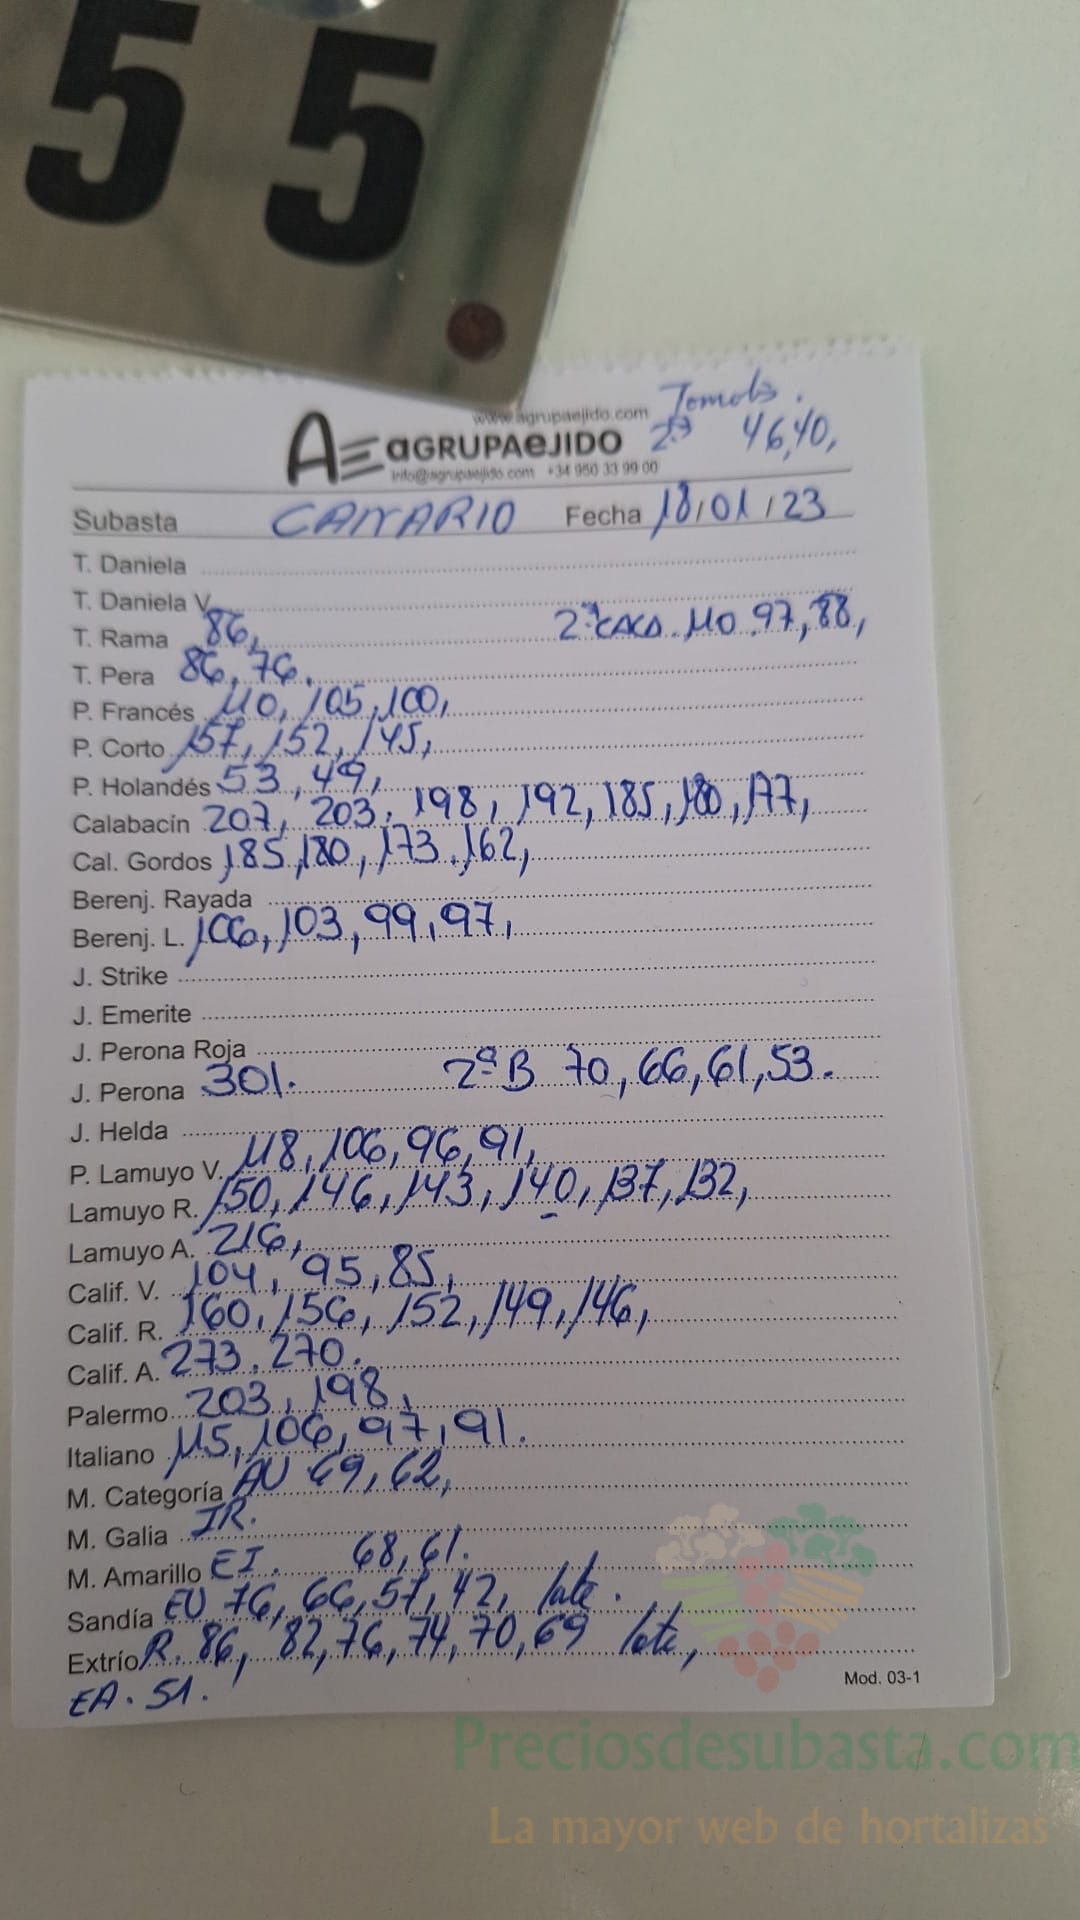 55
www.agrupaejido.com
Tomate.
AGRUPAEJIDO 2ª 46,40,
info@agrupaejido.com +34 950 33 99 00
Subasta CANARIO Fecha 18/01/23
T. Daniela
T. Daniela V.
T. Rama 86, 2ª CACD. 110, 97, 88,
T. Pera 86, 76.
P. Francés 110, 105, 100,
P. Corto 157, 152, 145,
P. Holandés 53, 49,
Calabacín 207, 203, 198, 192, 185, 180, 177,
Cal. Gordos 185, 180, 173, 162,
Berenj. Rayada
Berenj. L. 106, 103, 99, 97,
J. Strike
J. Emerite
J. Perona Roja
J. Perona 301. 2ª B 70, 66, 61, 53.
J. Helda
P. Lamuyo V. 118, 106, 96, 91,
Lamuyo R. 150, 146, 143, 140, 137, 132,
Lamuyo A. 216,
Calif. V. 104, 95, 85,
Calif. R. 160, 156, 152, 149, 146,
Calif. A. 273, 270.
Palermo 203, 198,
Italiano 115, 106, 97, 91.
M. Categoría AU 69, 62,
M. Galia IR.
M. Amarillo EI. 68, 61.
Sandía EU 76, 66, 57, 42, late.
Extrío R. 86, 82, 76, 74, 70, 69 late,
EA. 51.
Mod. 03-1
Preciosdesubasta.com
La mayor web de hortalizas